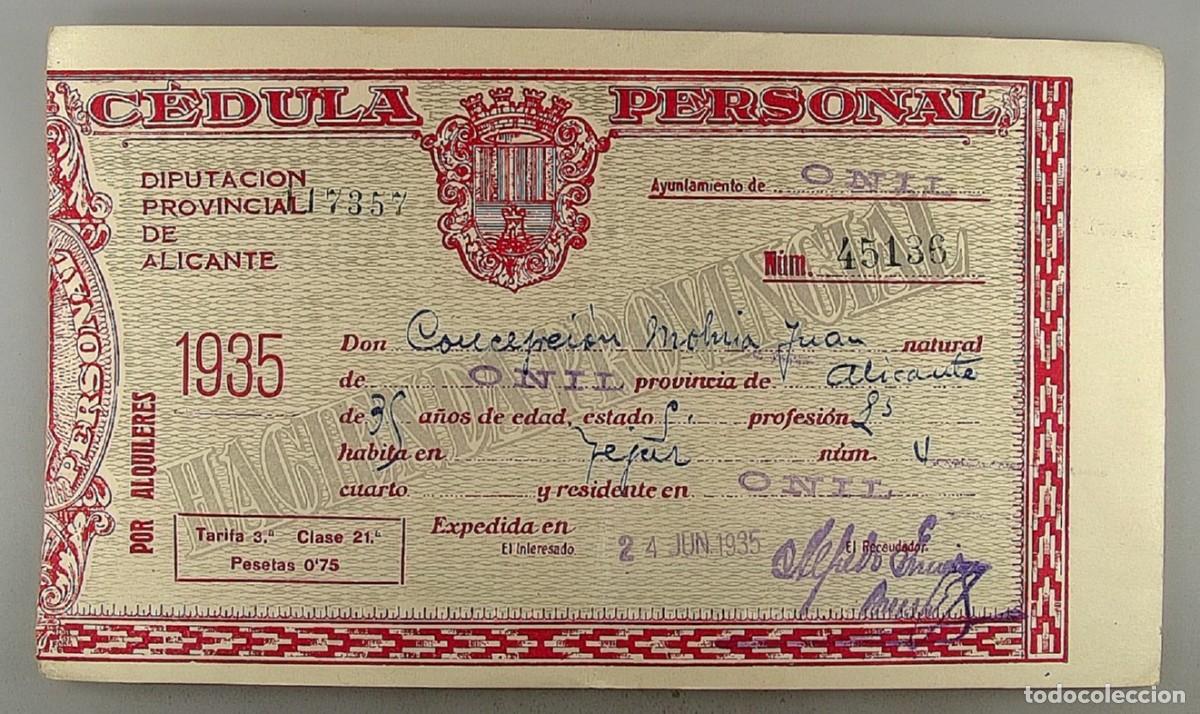 CÉDULA PERSONAL
DIPUTACION
PROVINCIAL
DE
ALICANTE
117357
Ayuntamiento de ONIL
Núm. 45136
HACIENDA PROVINCIAL
PERSONAL
POR ALQUILERES
1935
Don Concepción Molina Juan natural
de ONIL provincia de Alicante
de 35 años de edad, estado profesión
habita en Tejar núm. 4
cuarto y residente en ONIL
Expedida en
El Interesado. 24 JUN. 1935 El Recaudador.
Tarifa 3.ª Clase 21.ª
Pesetas 0'75
Alfredo
todocoleccion